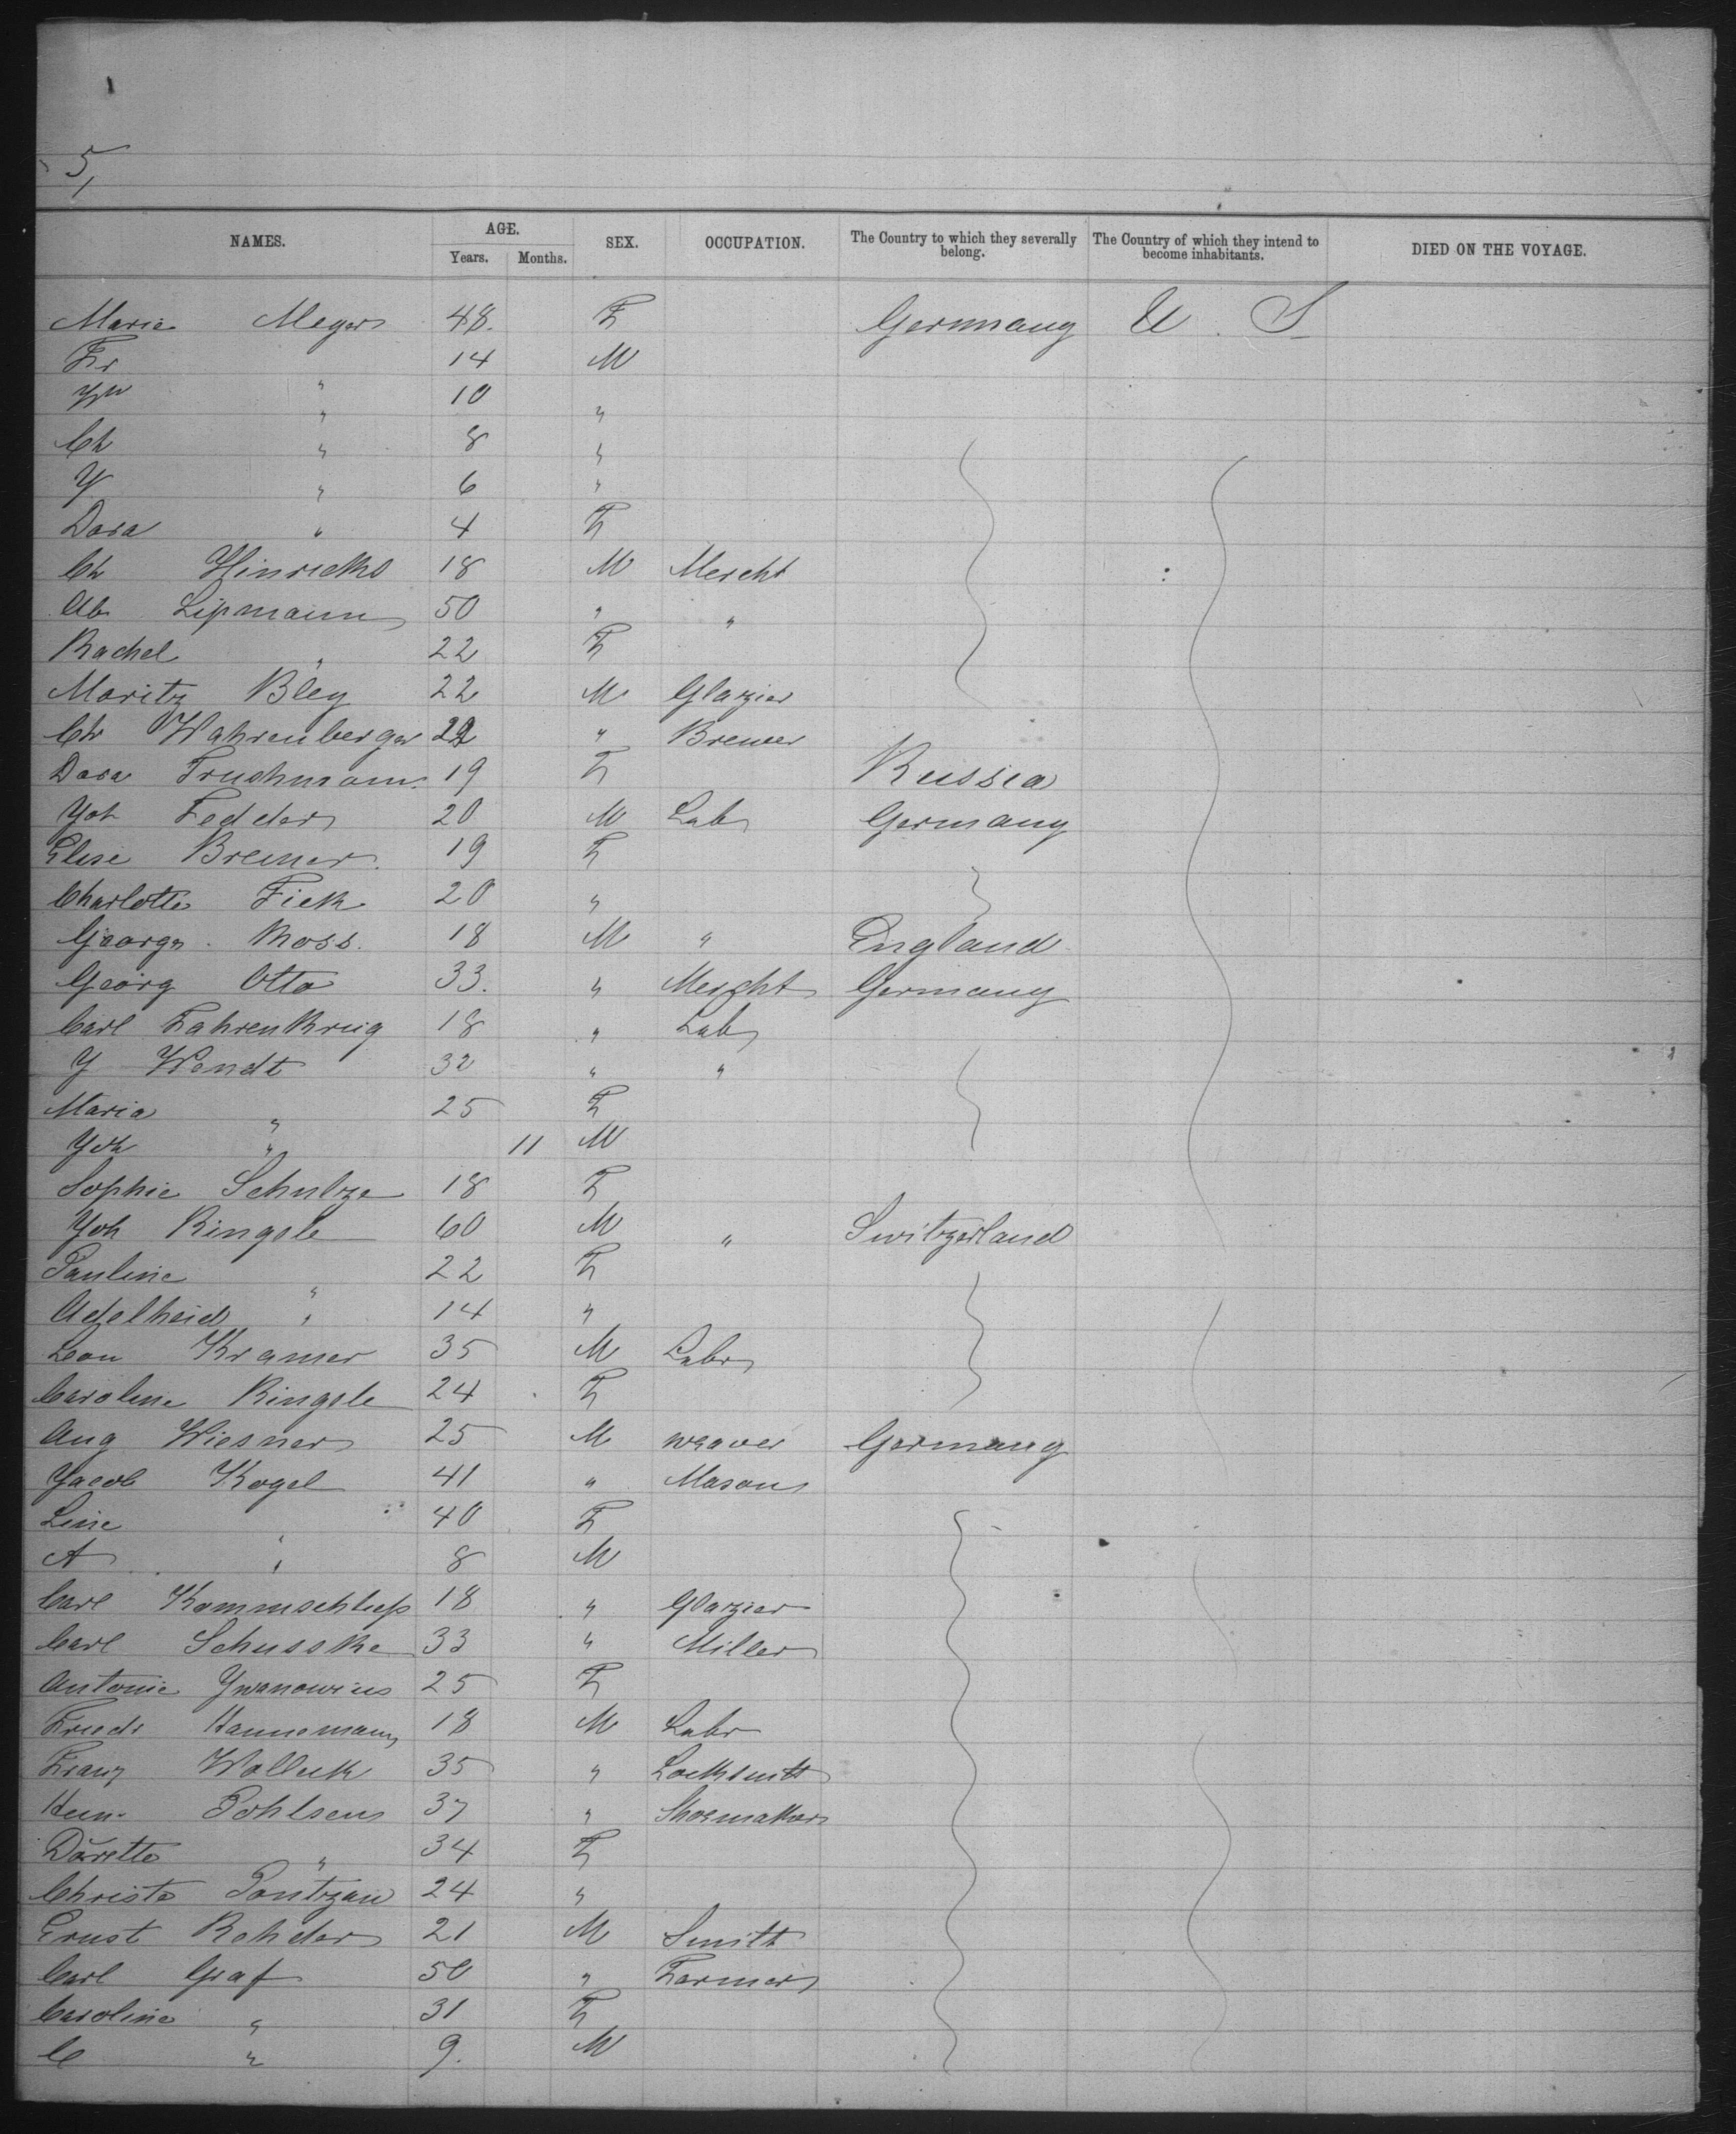 5,
NAMES. AGE. SEX. OCCUPATION. The Country to which they severally belong. The Country of which they intend to become inhabitants. DIED ON THE VOYAGE.
Years. Months.
Marie Meyer 48. F Germany U. S
Fr " 14 M
" 10 "
Ch " 8 "
Y " 6 "
Dora " 4 F
Ch Hinrichs 18 M Mercht
Ab Lipmann 50 " "
Rachel " 22 F
Moritz Bley 22 M Glazier
Chr Wahrenberger 22 " Brewer
Dora 19 F Russia
Joh Fedder 20 M Lab Germany
Elise Bremer. 19 F
Charlotte Fick 20 "
Georg. Moss. 18 M " England
Georg Otto 33. " Mercht Germany
Carl Fahrenkrug 18 " Lab
Y Wendt 32 " "
Maria " 25 F
Joh " 11 M
Sophie Schultze 18 F
Joh Ringele 60 M " Switzerland
Pauline " 22 F
Adelheid " 14 "
Leon Kramer 35 M Labr
Caroline Ringele 24 F
Aug Wiesner 25 M weaver Germany
Jacob Kogel 41 " Mason
Line " 40 F
A " 8 M
Carl 18 " Glazier
Carl Schusske 33 " Miller
Antonie Ywanowius 25 F
Friedr Hannemann 18 M Labr
Franz Walleck 35 " Locksmith
Hein. Pohlsen 37 " Shoemaker
Dorette " 34 F
Christe 24 "
Ernst Rehder 21 M Smith
Carl Graf 50 " Farmer
Caroline " 31 F
C " 9. M